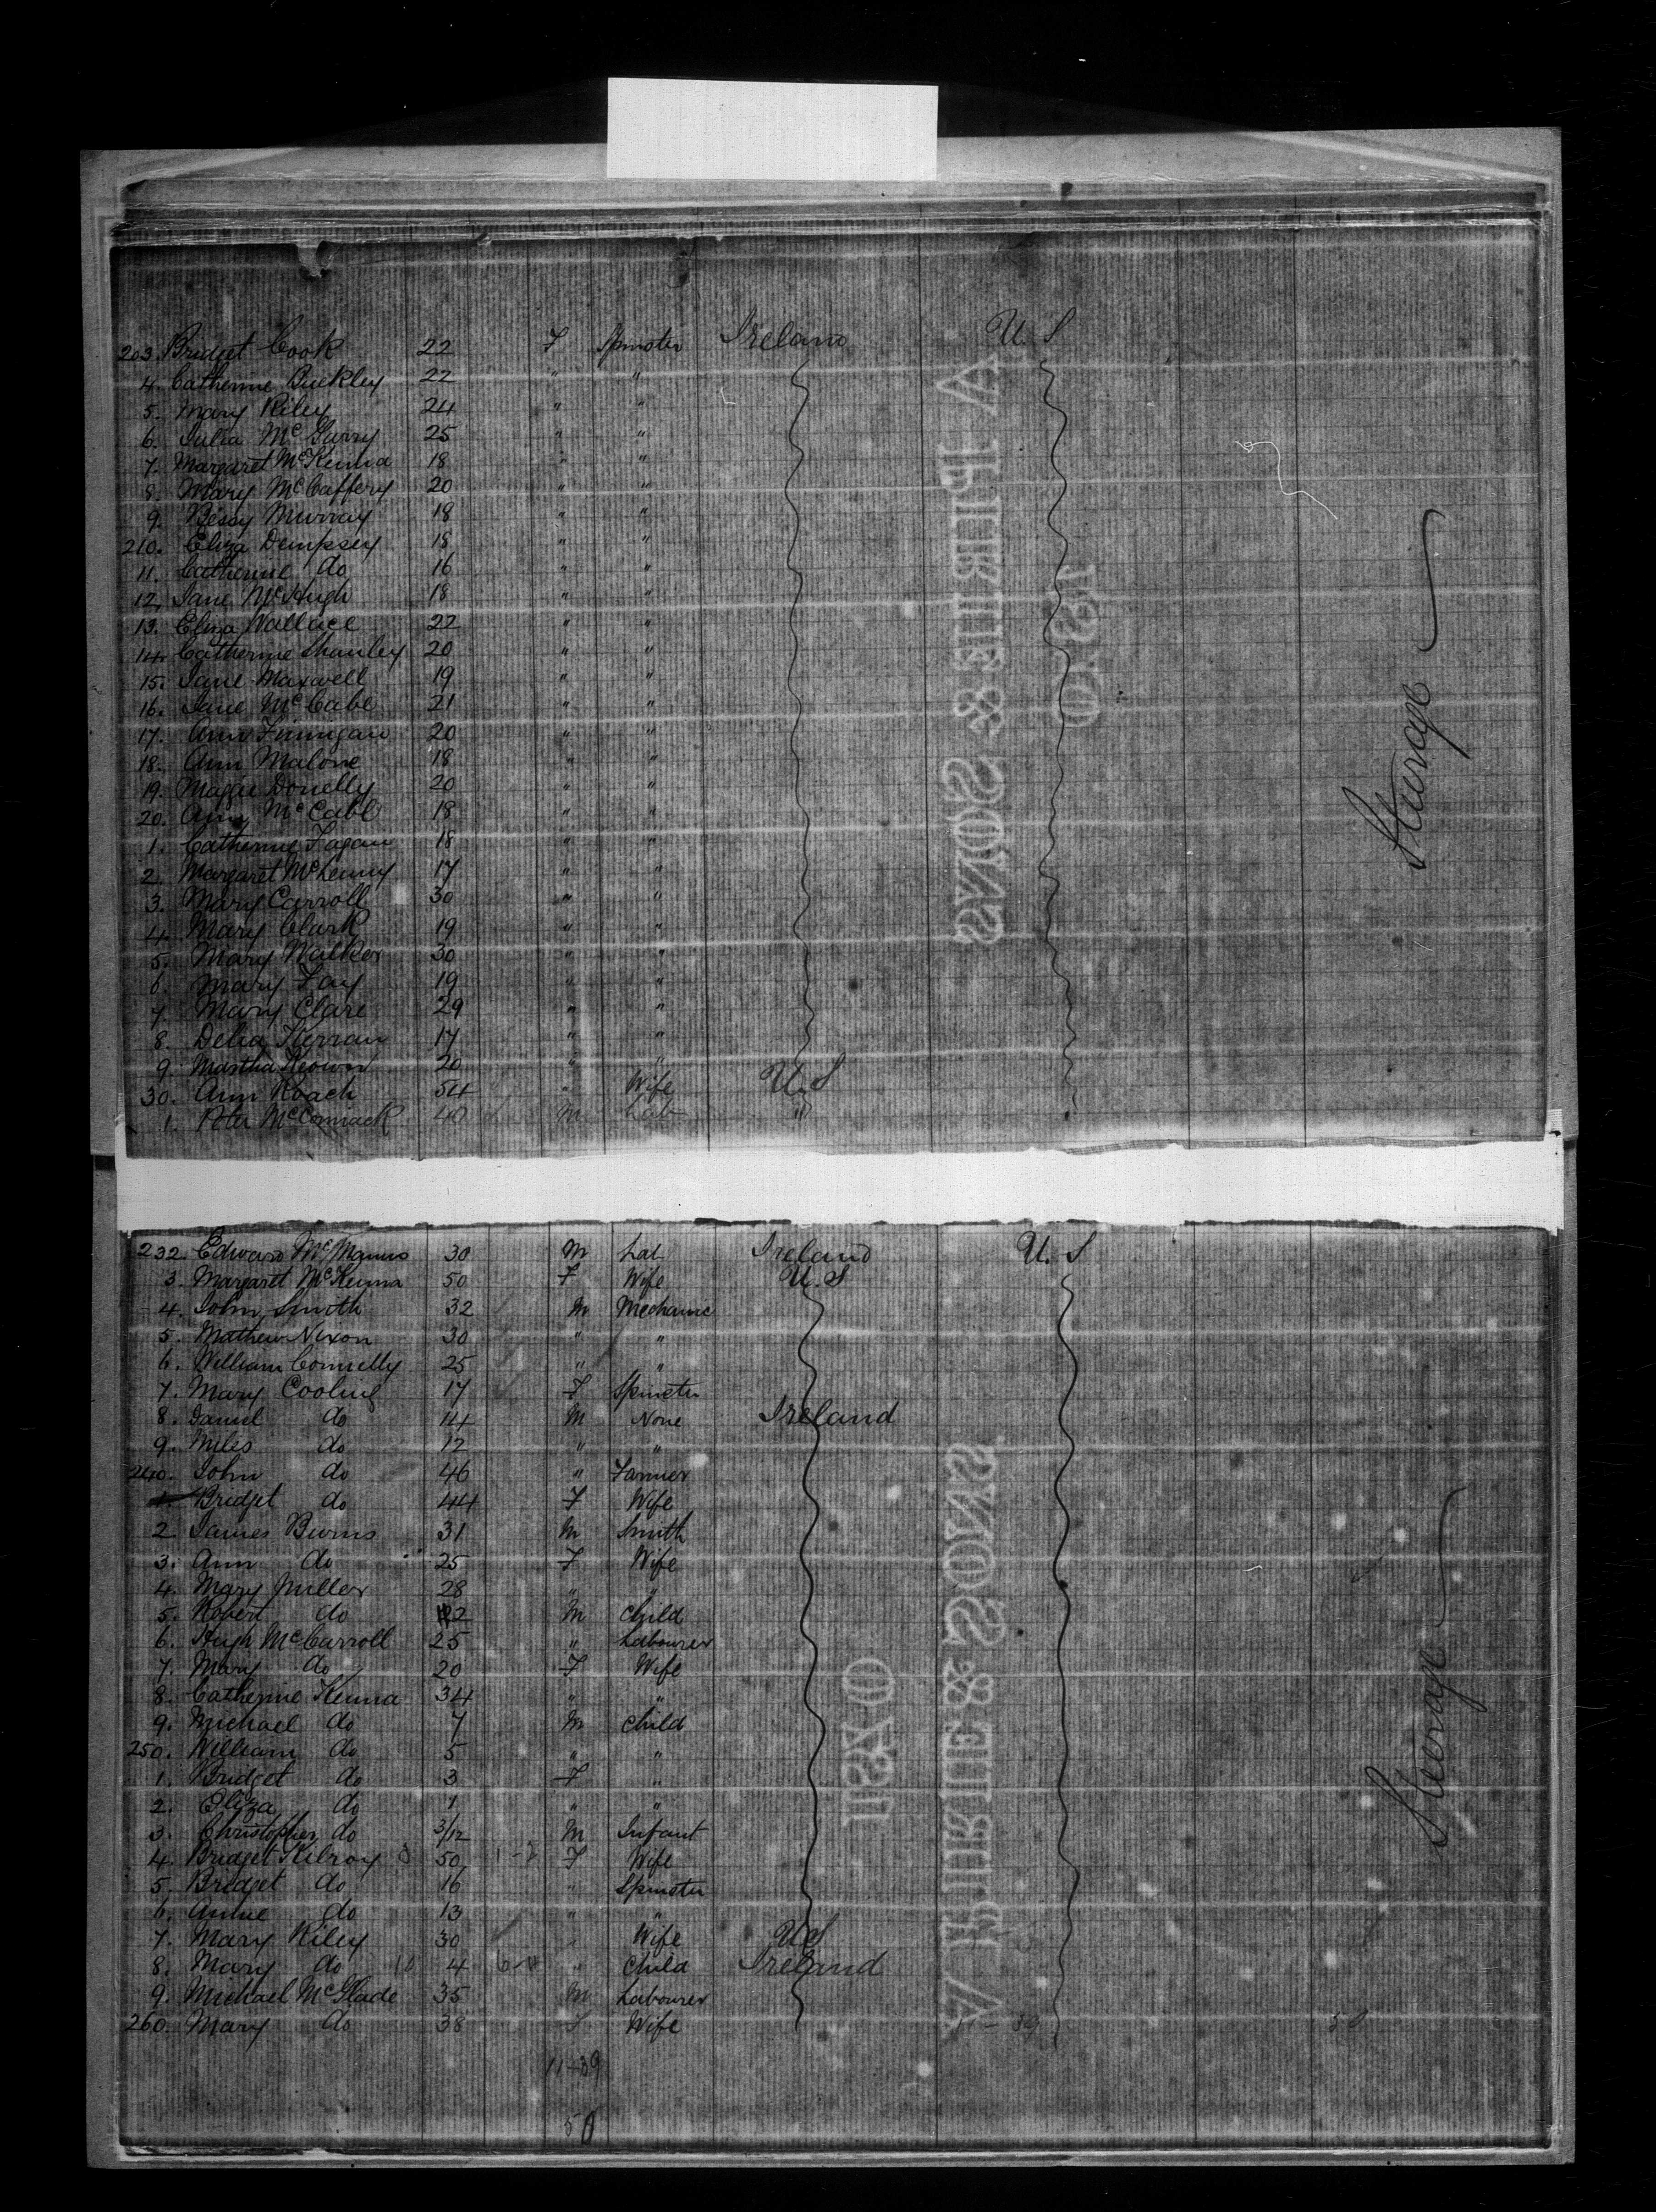 203. Bridget Cook 22 F Spinster Ireland U. S
4. Catherine Buckley 22 " "
5. Mary Riley 24 " "
6. Julia McGarry 25 " "
7. Margaret McKenna 18 " "
8. Mary McCaffery 20 " "
9. Bessy Murray 18 " "
210. Eliza Dempsey 18 " "
11. Catherine do 16 " "
12. Jane McHugh 18 " "
13. Eliza Wallace 22 " "
14. Catherine Shanley 20 " "
15. Jane Maxwell 19 " "
16. Jane McCabe 21 " "
17. Ann Finnigan 20 " "
18. Ann Malone 18 " "
19. Maggie Donelly 20 " "
20. Amy McCabe 18 " "
1. Catherine Fagan 18 " "
2. Margaret 17 " "
3. Mary Carroll 30 " "
4. Mary Clark 19 " "
5. Mary Walker 30 " "
6. Mary Fay 19 " "
7. Mary Clare 29 " "
8. Delia 17 " "
9. Martha Keown 20 " "
30. Ann Roach 54 " Wife U. S
1. Peter McCormack 40 M Lab "
Steerage
A PIRIE & SONS
1870
232. Edward McManus 30 M Lab Ireland U. S
3. Margaret McKenna 50 F Wife U. S
4. John Smith 32 M Mechanic
5. Mathew Nixon 30 " "
6. William Connelly 25 " "
7. Mary Cooling 17 F Spinster
8. Daniel do 14 M None Ireland
9. Miles do 12 " "
240. John do 46 " Farmer
1. Bridget do 44 F Wife
2. James Burns 31 M Smith
3. Ann do 25 F Wife
4. Mary Miller 28 " "
5. Robert do 2 M Child
6. Hugh McCarroll 25 " Labourer
7. Mary do 20 F Wife
8. Catherine Kenna 34 " "
9. Michael do 7 M Child
250. William do 5 " "
1. Bridget do 3 F "
2. Eliza do 1 " "
3. Christopher do 3/12 M Infant
4. Bridget Kilroy 50 F Wife
5. Bridget do 16 " Spinster
6. Annie do 13 " "
7. Mary Riley 30 " Wife U S
8. Mary do 4 " Child Ireland
9. Michael McGlade 35 M Labourer
260. Mary do 38 F Wife
11-39
50
Steerage
A PIRIE & SONS
1870